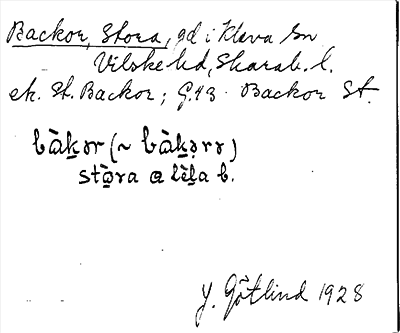 Backor, Stora, gd i Kleva sn
Vilske hd, Skarab. l.
ek. St. Backor; G.43. Backor St.
bàk̲ər (~ bàk̲ərə)
stò̲ra a lèl̲a b.
J. Götlind 1928